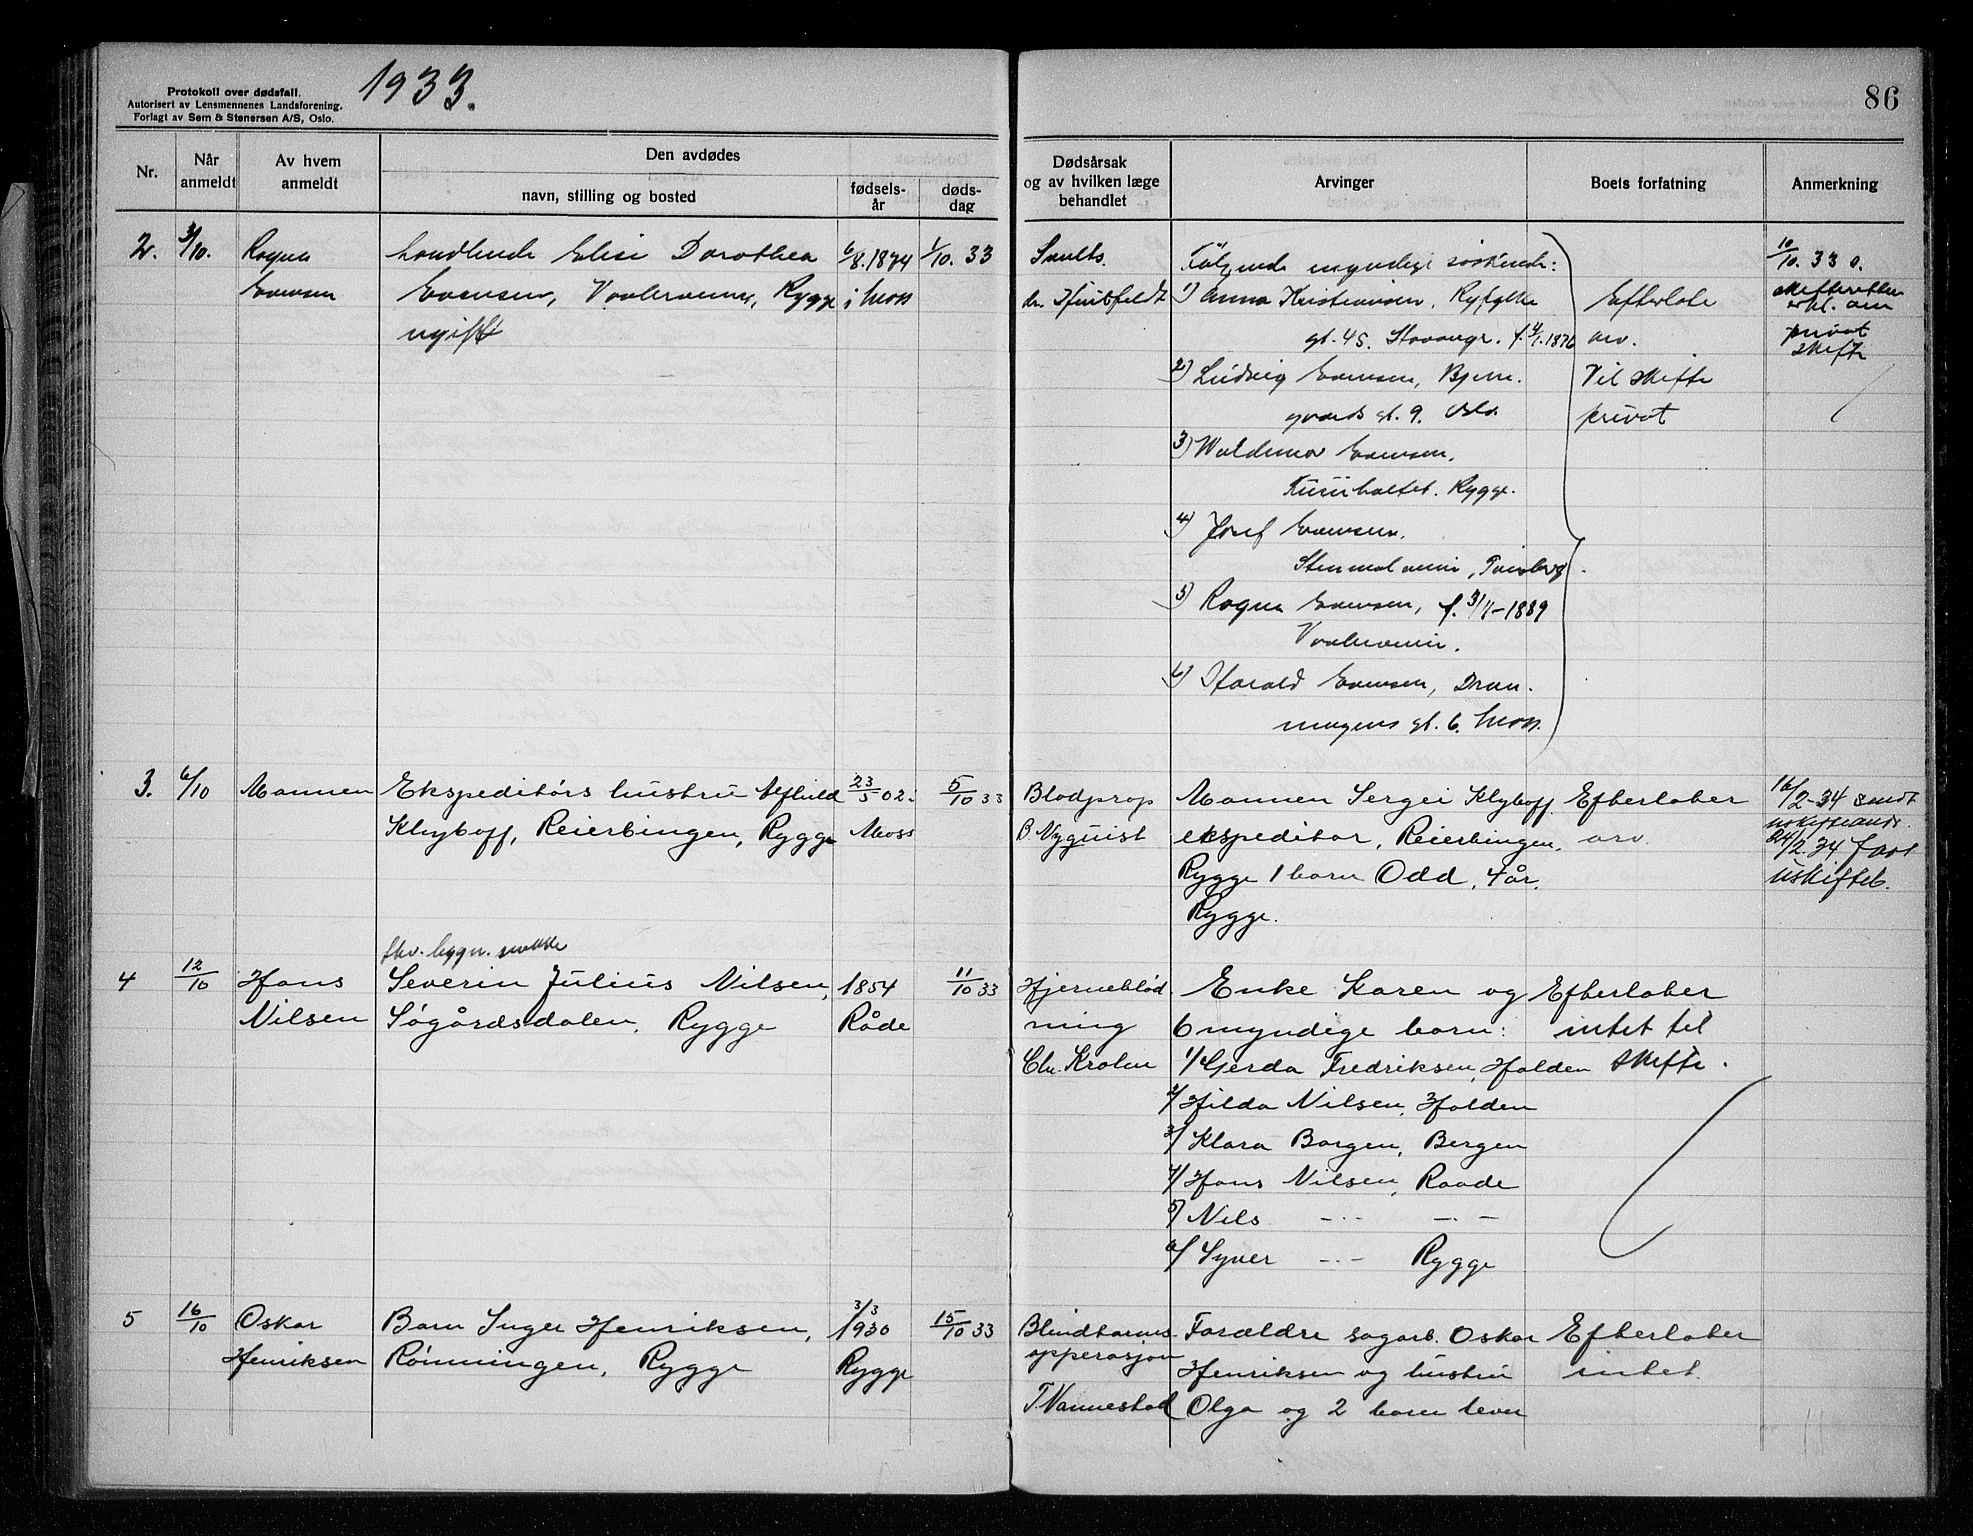 Protokoll over dødsfall.
Autorisert av Lensmennenes Landsforening.
Forlagt av Sem & Stenersen A/S, Oslo.
1933.
86
Nr.
Når anmeldt
Av hvem anmeldt
Den avdødes
navn, stilling og bosted
fødsels-år
døds-dag
Dødsårsak og av hvilken læge behandlet
Arvinger
Boets forfatning
Anmerkning
2. 3/10. Ragna Evensen
Elise Dorothea
Evensen, Vaalerveien, Rygge
ugift
6/8.1874
i Moss
1/10. 33
dr. Huitfeldt
Følgende myndige søskende:
1) Anna Kristiansen, Ryfylke
gt. 45. Stavanger. f. 4/1.1876
2) Ludvig Evensen, Bjerre-
gaards gt. 9. Oslo.
3) Waldemar Evensen,
Rygge.
4) Josef Evensen.
5) Ragna Evensen, f. 3/7-1889
Vaalerveien.
6) Harald Evensen, Dron-
ningens gt. 6. Moss.
Efterlate
arv.
Vil skifte
privat
10/10. 33 s.
skifteretten
erkl. om
privat
skifte
3. 6/10 Mannen
Ekspeditørs hustru Alfhild
Klyboff, Reierbingen, Rygge
23/5 02.
Moss
5/10 33
Blodprop
B. Nyquist
Mannen Sergei Klyboff
ekspeditør, Reierbingen,
Rygge 1 barn Odd, 4 år,
Rygge.
Efterlater
arv.
16/2-34 sendt
24/2.34 
uskiftet.
4 12/10 Hans
Nilsen
fhv. bygn. snekker
Severin Julius Nilsen,
Søgårdsdalen, Rygge
1854
Råde
11/10 33
Hjerneblød-
ning
Enke Karen og
6 myndige barn:
1/ Gerda Fredriksen, Halden
2/ Hilda Nilsen, Halden
3/ Klara Borgen, Bergen
4/ Hans Nilsen, Raade
5/ Nils -..- -..-
6/ Syver -..- Rygge
Efterlater
intet til
skifte.
5 16/10 Oskar
Henriksen
Barn Inger Henriksen,
Rønningen, Rygge
3/3
1930
Rygge
15/10 33
Blindtarms-
opperasjon
T. Vannestad
Forældre sagarb. Oskar
Henriksen og hustru
Olga og 2 barn lever
Efterlater
intet.